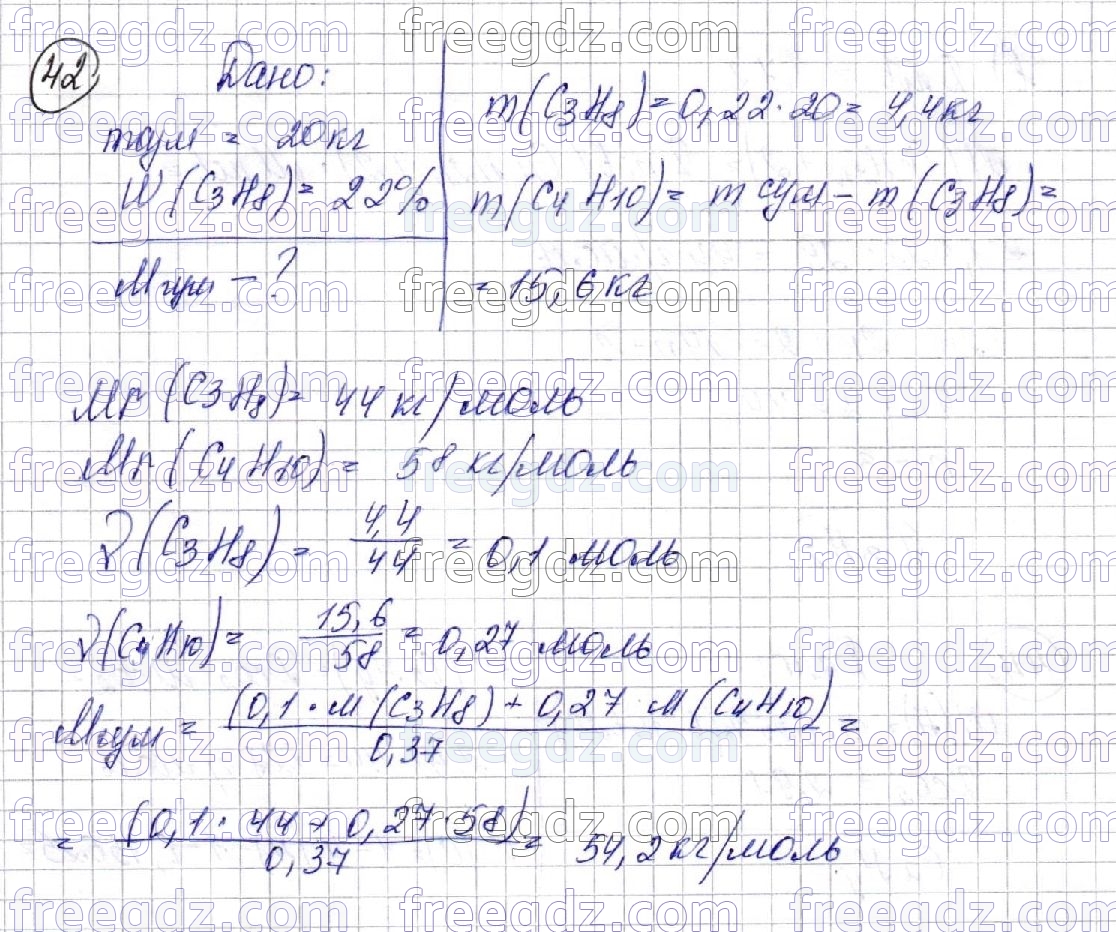 42
Дано:
m сум = 20 кг
W (C3H8) = 22%
M сум - ?
m (C3H8) = 0,22 · 20 = 4,4 кг
m (C4H10) = m сум - m (C3H8) =
= 15,6 кг
Mr (C3H8) = 44 кг/моль
Mr (C4H10) = 58 кг/моль
ν (C3H8) = 4,4/44 = 0,1 моль
ν (C4H10) = 15,6/58 = 0,27 моль
M сум = (0,1 · M (C3H8) + 0,27 M (C4H10)/0,37 =
= (0,1 · 44 + 0,27 · 58)/0,37 = 54,2 кг/моль
freegdz.com